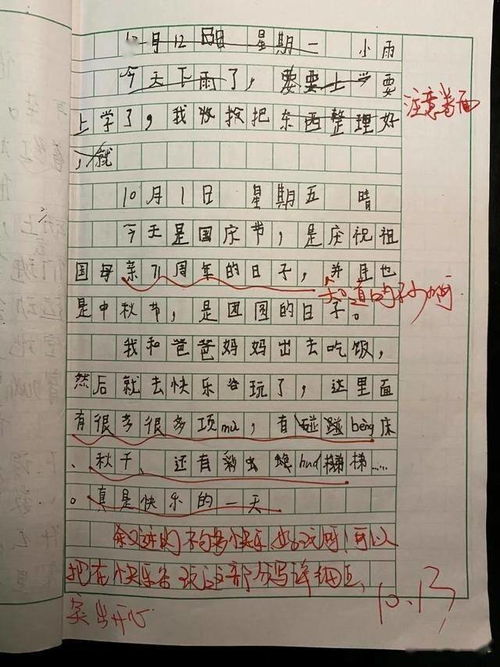 10月12日 星期一 小雨
今天下雨了，要要上学要
上学了，我收拾把东西整理好
，就
注意卷面
10月1日 星期五 晴
今天是国庆节，是庆祝祖
国母亲71周年的日子，并且也
知道的不少啊
是中秋节，是团圆的日子。
我和爸爸妈妈出去吃饭，
然后就去快乐谷玩了，这里面
有很多很多项mù，有碰蹦bèng床
、秋千、还有彩虫huá梯……
。真是快乐的一天
可以
把在快乐谷玩这部分写详细点，
突出开心
10.13